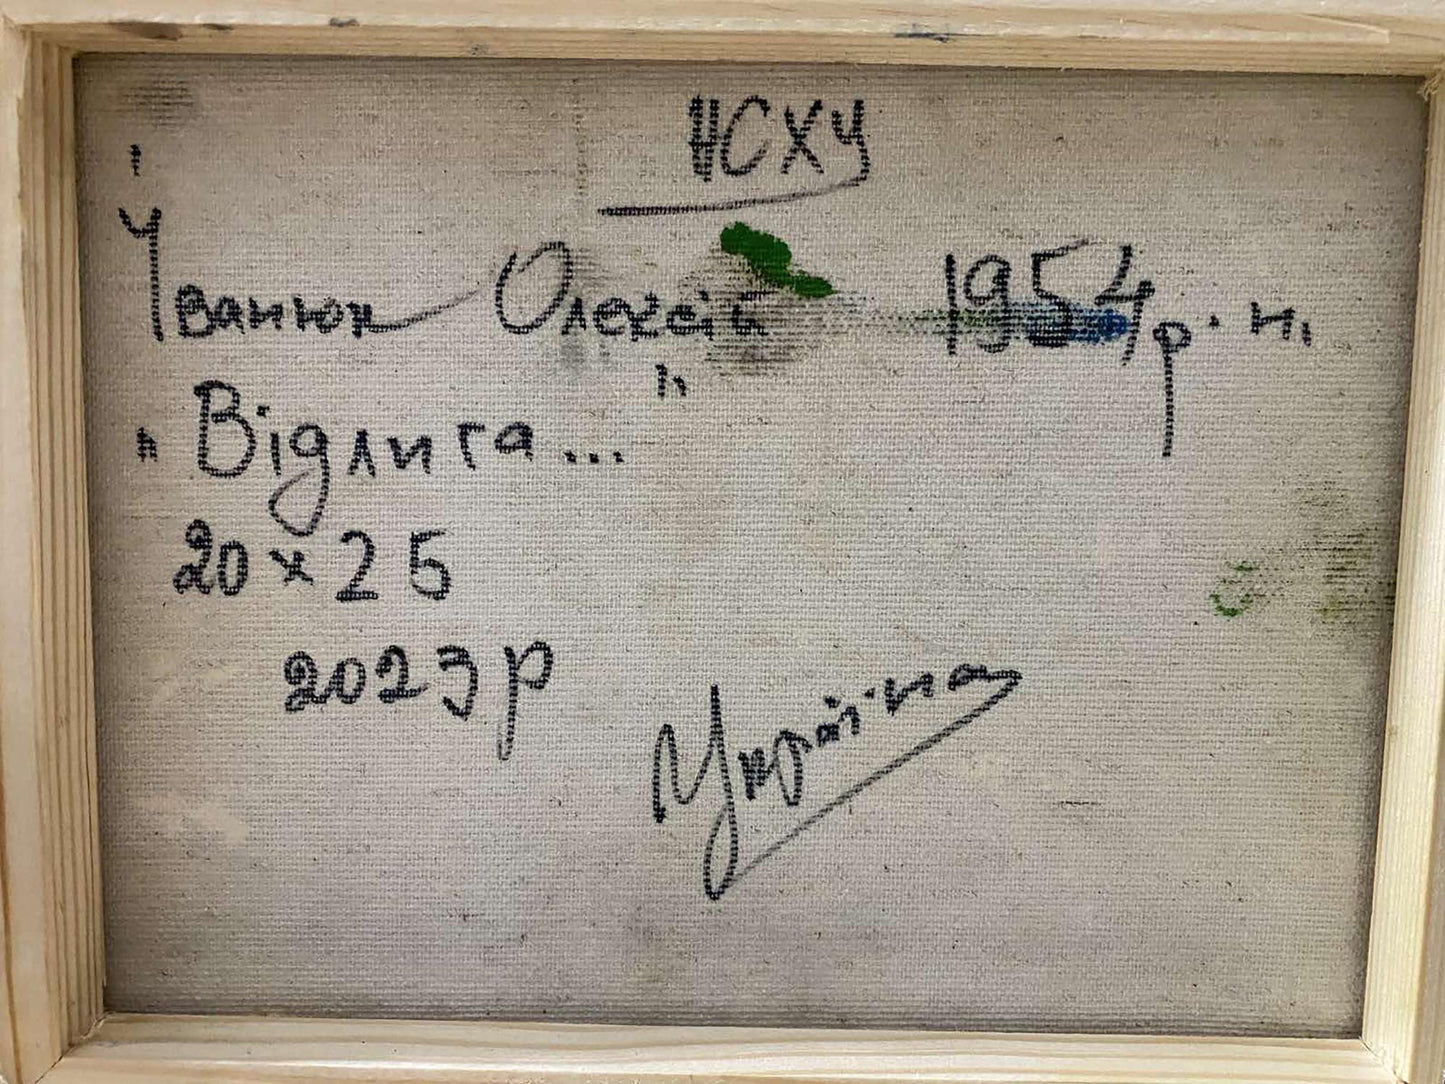 НСХУ
Іванюк Олексій 1954 р. н.
"Відлига..."
20 x 25
2023 р
Україна